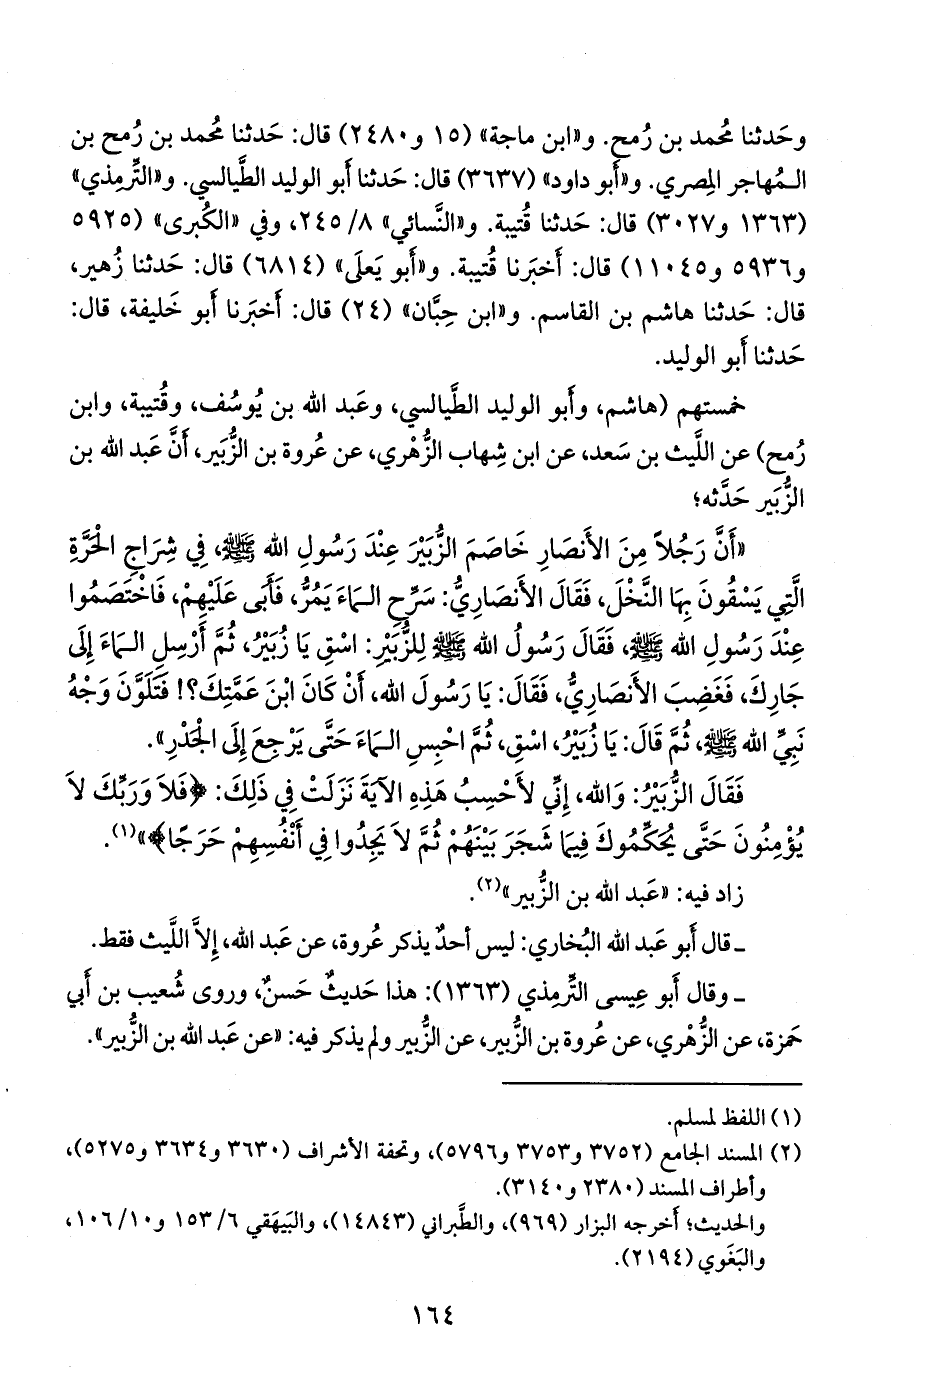 وحَدثنا مُحمد بن رُمح. و«ابن ماجة» (١٥ و٢٤٨٠) قال: حَدثنا مُحمد بن رُمح بن
الـمُهاجر المِصري. و«أَبو داود» (٣٦٣٧) قال: حَدثنا أَبو الوليد الطَّيالسي. و«التِّرمِذي»
(١٣٦٣ و٣٠٢٧) قال: حَدثنا قُتيبة. و«النَّسائي» ٨/ ٢٤٥، وفي «الكُبرى» (٥٩٢٥
و٥٩٣٦ و١١٠٤٥) قال: أَخبَرنا قُتيبة. و«أَبو يَعلَى» (٦٨١٤) قال: حَدثنا زُهير،
قال: حَدثنا هاشم بن القاسم. و«ابن حِبَّان» (٢٤) قال: أَخبَرنا أَبو خَليفة، قال:
حَدثنا أَبو الوليد.
خمستهم (هاشم، وأَبو الوليد الطَّيالسي، وعَبد الله بن يُوسُف، وقُتيبة، وابن
رُمح) عن اللَّيث بن سَعد، عن ابن شِهاب الزُّهْري، عن عُروة بن الزُّبَير، أَنَّ عَبد الله بن
الزُّبَير حَدَّثه؛
«أَنَّ رَجُلاً مِنَ الأَنصَارِ خَاصَمَ الزُّبَيْرَ عِنْدَ رَسُولِ الله ﷺ، فِي شِرَاجِ الْحَرَّةِ
الَّتِي يَسْقُونَ بِهَا النَّخْلَ، فَقَالَ الأَنصَارِيُّ: سَرِّحِ الـمَاءَ يَمُرُّ، فَأَبَى عَلَيْهِمْ، فَاخْتَصَمُوا
عِنْدَ رَسُولِ الله ﷺ، فَقَالَ رَسُولُ الله ﷺ لِلزُّبَيْرِ: اسْقِ يَا زُبَيْرُ، ثُمَّ أَرْسِلِ الـمَاءَ إِلَى
جَارِكَ، فَغَضِبَ الأَنصَارِيُّ، فَقَالَ: يَا رَسُولَ الله، أَنْ كَانَ ابْنَ عَمَّتِكَ؟! فَتَلَوَّنَ وَجْهُ
نَبِيِّ الله ﷺ، ثُمَّ قَالَ: يَا زُبَيْرُ، اسْقِ، ثُمَّ احْبِسِ الـمَاءَ حَتَّى يَرْجِعَ إِلَى الْجَدْرِ».
فَقَالَ الزُّبَيْرُ: وَالله، إِنِّي لأَحْسِبُ هَذِهِ الآيَةَ نَزَلَتْ فِي ذَلِكَ: ﴿فَلاَ وَرَبِّكَ لاَ
يُؤْمِنُونَ حَتَّى يُحَكِّمُوكَ فِيمَا شَجَرَ بَيْنَهُمْ ثُمَّ لاَ يَجِدُوا فِي أَنْفُسِهِمْ حَرَجًا﴾»(١).
زاد فيه: «عَبد الله بن الزُّبير»(٢).
ـ قال أَبو عَبد الله البُخاري: ليس أَحدٌ يذكر عُروة، عن عَبد الله، إِلاَّ اللَّيث فقط.
ـ وقال أَبو عِيسى التِّرمِذي (١٣٦٣): هذا حَديثٌ حَسنٌ، وروى شُعيب بن أَبي
حَمزة، عن الزُّهْري، عن عُروة بن الزُّبير، عن الزُّبير ولم يذكر فيه: «عن عَبد الله بن الزُّبير».
(١) اللفظ لمسلم.
(٢) المسند الجامع (٣٧٥٢ و٣٧٥٣ و٥٧٩٦)، وتحفة الأشراف (٣٦٣٠ و٣٦٣٤ و٥٢٧٥)،
وأطراف المسند (٢٣٨٠ و٣١٤٠).
والحديث؛ أخرجه البزار (٩٦٩)، والطَّبراني (١٤٨٤٣)، والبَيهَقي ٦/ ١٥٣ و١٠/ ١٠٦،
والبَغَوي (٢١٩٤).
١٦٤